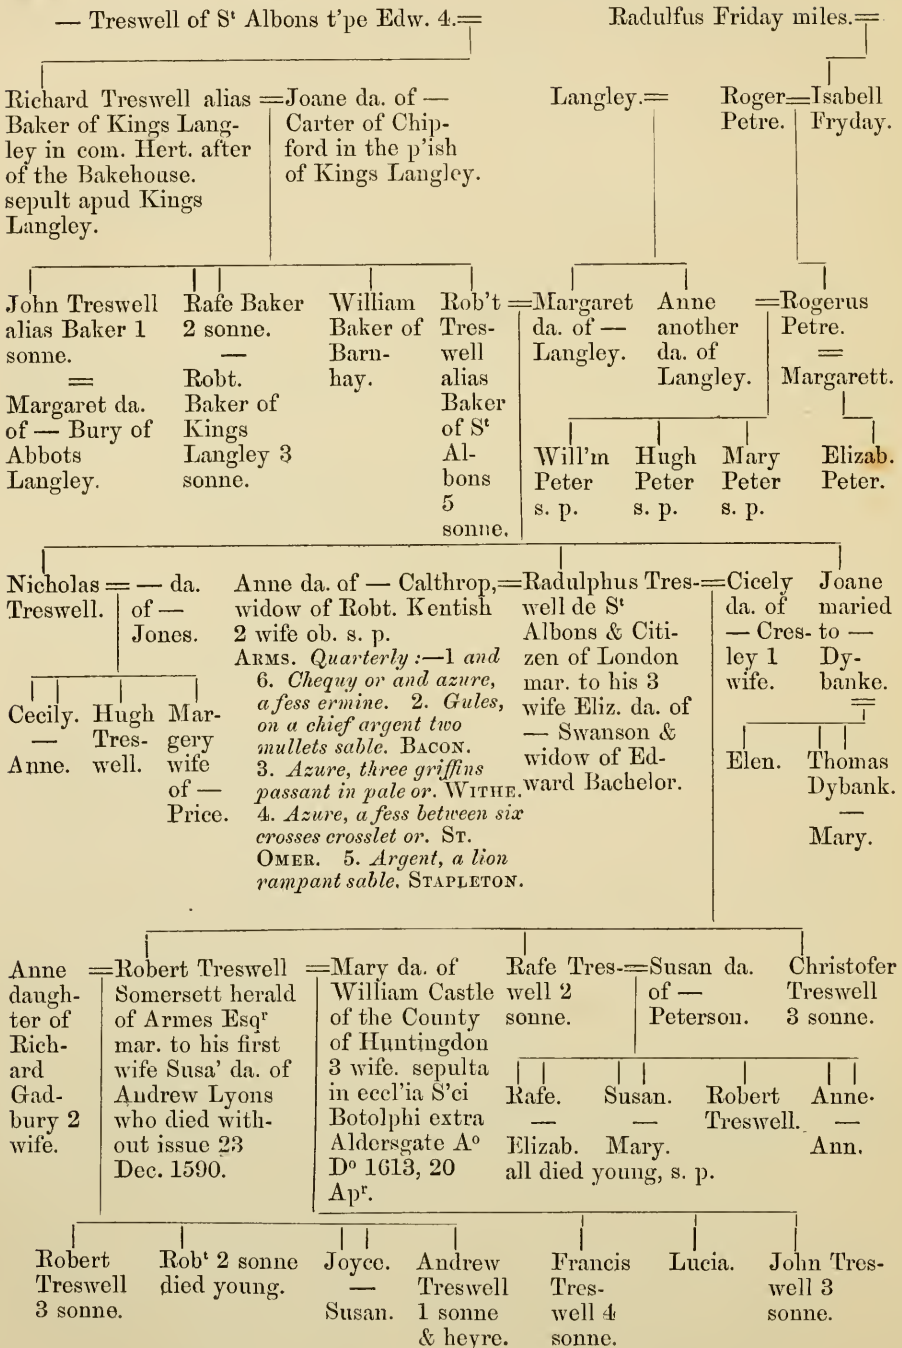 — Treswell of Sᵗ Albons t'pe Edw. 4.=
Radulfus Friday miles.=
Richard Treswell alias
Baker of Kings Lang-
ley in com. Hert. after
of the Bakehouse.
sepult apud Kings
Langley.
=Joane da. of —
Carter of Chip-
ford in the p'ish
of Kings Langley.
Langley.=
Roger
Petre.
=Isabell
Fryday.
John Treswell
alias Baker 1
sonne.
=
Margaret da.
of — Bury of
Abbots
Langley.
Rafe Baker
2 sonne.
—
Robt.
Baker of
Kings
Langley 3
sonne.
William
Baker of
Barn-
hay.
Rob't
Tres-
well
alias
Baker
of Sᵗ
Al-
bons
5
sonne.
=Margaret
da. of —
Langley.
Anne
another
da. of
Langley.
=Rogerus
Petre.
=
Margarett.
Will'm
Peter
s. p.
Hugh
Peter
s. p.
Mary
Peter
s. p.
Elizab.
Peter.
Nicholas
Treswell.
= — da.
of —
Jones.
Anne da. of — Calthrop,
widow of Robt. Kentish
2 wife ob. s. p.
ARMS. Quarterly :—1 and
6. Chequy or and azure,
a fess ermine. 2. Gules,
on a chief argent two
mullets sable. BACON.
3. Azure, three griffins
passant in pale or. WITHE.
4. Azure, a fess between six
crosses crosslet or. ST.
OMER. 5. Argent, a lion
rampant sable. STAPLETON.
=Radulphus Tres-
well de Sᵗ
Albons & Citi-
zen of London
mar. to his 3
wife Eliz. da. of
— Swanson &
widow of Ed-
ward Bachelor.
=Cicely
da. of
— Cres-
ley 1
wife.
Joane
maried
to —
Dy-
banke.
=
Cecily.
—
Anne.
Hugh
Tres-
well.
Mar-
gery
wife
of —
Price.
Elen.
Thomas
Dybank.
—
Mary.
Anne
daugh-
ter of
Rich-
ard
Gad-
bury 2
wife.
=Robert Treswell
Somersett herald
of Armes Esqʳ
mar. to his first
wife Susa' da. of
Andrew Lyons
who died with-
out issue 23
Dec. 1590.
=Mary da. of
William Castle
of the County
of Huntingdon
3 wife. sepulta
in eccl'ia S'ci
Botolphi extra
Aldersgate Aᵒ
Dᵒ 1613, 20
Apʳ.
Rafe Tres-
well 2
sonne.
=Susan da.
of —
Peterson.
Christofer
Treswell
3 sonne.
Rafe.
—
Elizab.
Susan.
—
Mary.
Robert
Treswell.
Anne.
—
Ann.
all died young, s. p.
Robert
Treswell
3 sonne.
Robᵗ 2 sonne
died young.
Joyce.
—
Susan.
Andrew
Treswell
1 sonne
& heyre.
Francis
Tres-
well 4
sonne.
Lucia.
John Tres-
well 3
sonne.